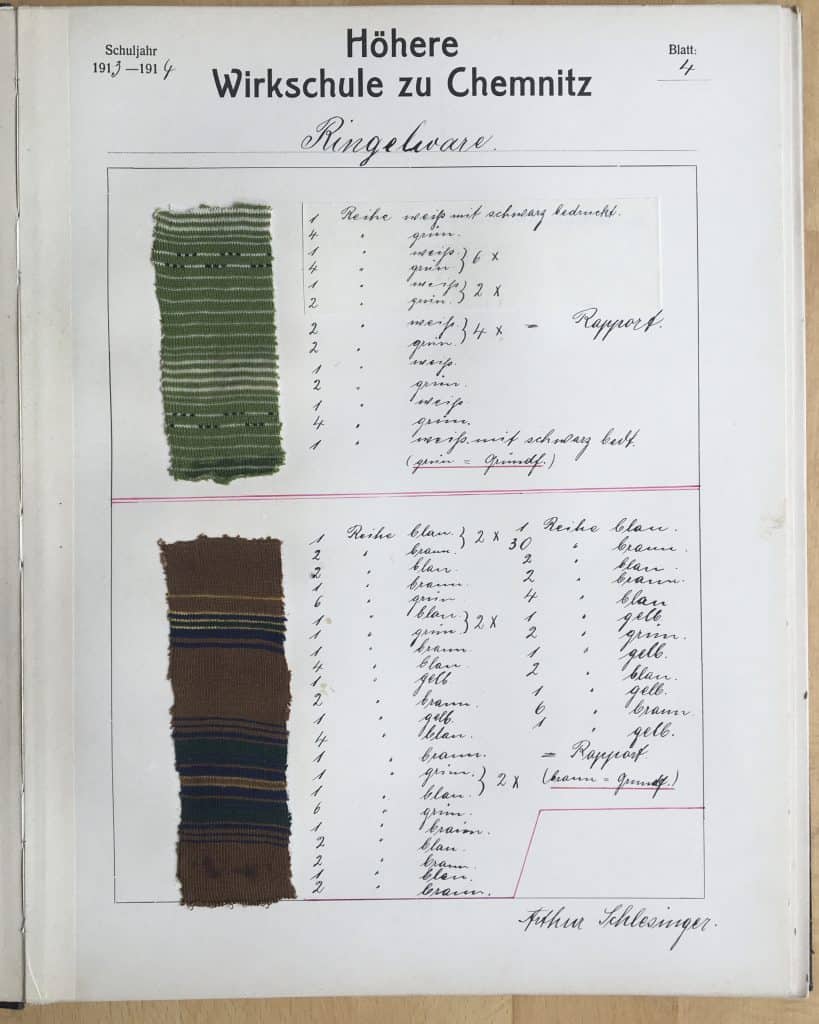 Schuljahr
1913—1914
Höhere
Wirkschule zu Chemnitz
Blatt:
4
Ringelware.
1 Reihe weiß mit schwarz bedruckt.
4 " grün.
1 " weiß. } 6 x
4 " grün.
1 " weiß } 2 x
2 " grün.
2 " weiß. } 4 x = Rapport.
2 " grün.
1 " weiß.
2 " grün.
1 " weiß
4 " grün.
1 " weiß mit schwarz bedr.
(grün = Grundf.)
1 Reihe blau. } 2 x
2 " braun.
2 " blau.
1 " braun.
6 " grün.
1 " blau. } 2 x
1 " grün.
1 " braun.
4 " blau.
1 " gelb
2 " braun.
1 " gelb.
4 " blau.
1 " braun.
1 " grün. } 2 x
1 " blau.
6 " grün.
1 " braun.
2 " blau.
2 " braun.
1 " blau.
2 " braun.
1 Reihe blau.
30 " braun.
2 " blau.
2 " braun.
4 " blau
1 " gelb.
2 " grün.
1 " gelb.
2 " blau.
1 " gelb.
6 " braun.
1 " gelb.
= Rapport.
(braun = Grundf.)
Arthur Schlesinger.